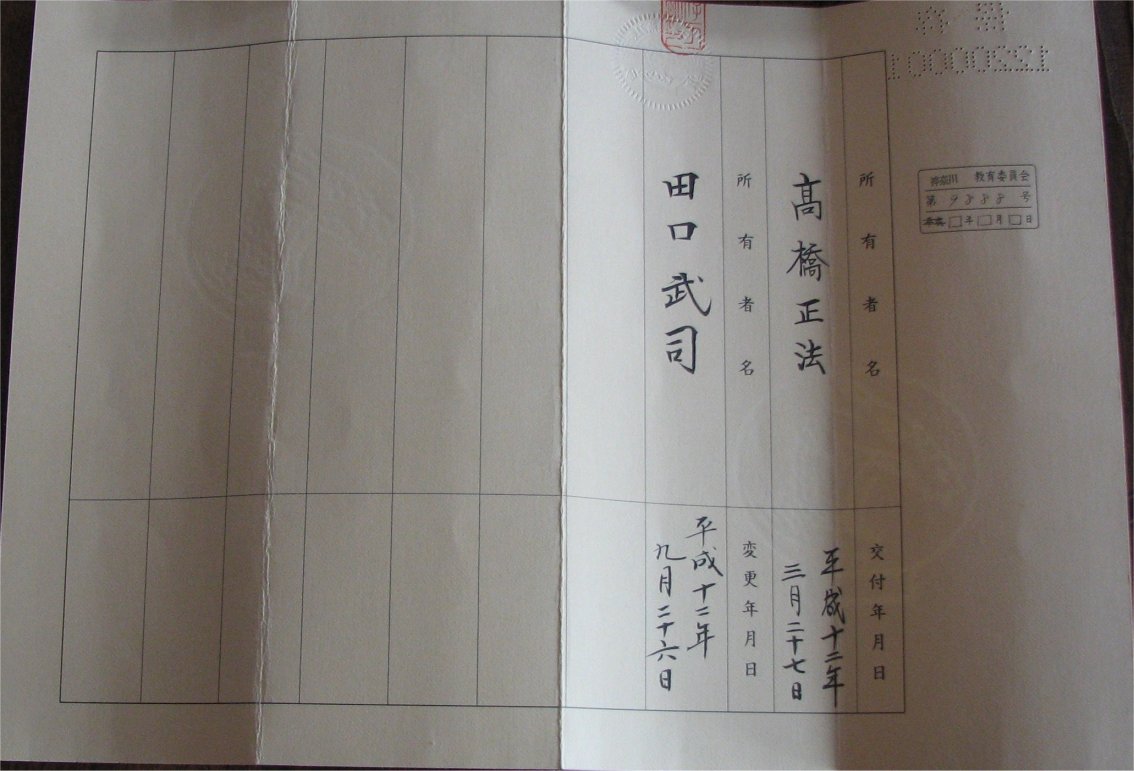 1220001
神奈川 教育委員会
第9888号
年 月 日
所有者名
髙橋正法
交付年月日
平成十二年
三月二十七日
所有者名
田口武司
変更年月日
平成十二年
九月二十六日